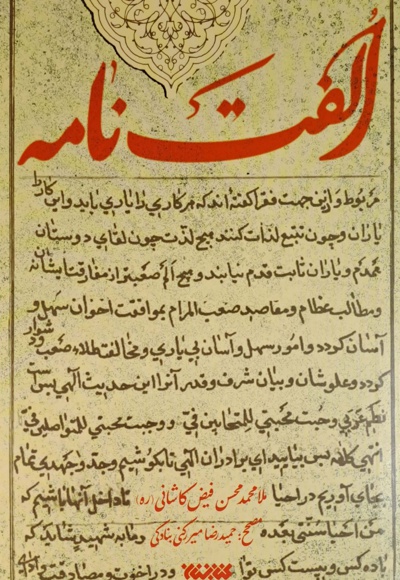 الفت نامه
مربوط و ازین جهت فقرا گفته‌اند که هر کاری را یاری باید و این کار را
یاران و چون تتبع لذات کنند هیچ لذت چون لقای دوستان
همدم و یاران ثابت قدم نیابند و هیچ الم صعبتر از مفارقت ایشان نه
و مطالب عظام و مقاصد صعب المرام بموافقت اخوان سهل و
آسان گردد و امور سهل و آسان بی یاری و مخالفت خلاء صعب و دشوار
گردد و علو شان و بیان شرف و قدر آنرا این حدیث الهی بس است
وجبت محبتی للمتحابین فیّ و وجبت محبتی للمتواصلین فیّ
انتهی کلامه پس بیایید ای برادران الهی تا بکوشیم وجد و جهدی تمام
بجای آوریم در احیا ملا محمد محسن فیض کاشانی (ره) تا داخل آنها باشیم که
من احیا سنتی بعده مصحح: حمیدرضا میرکنی بنادکی و مثابه شهید شاید که
یاده کس و بیست کس و در اخوت و مصادقت